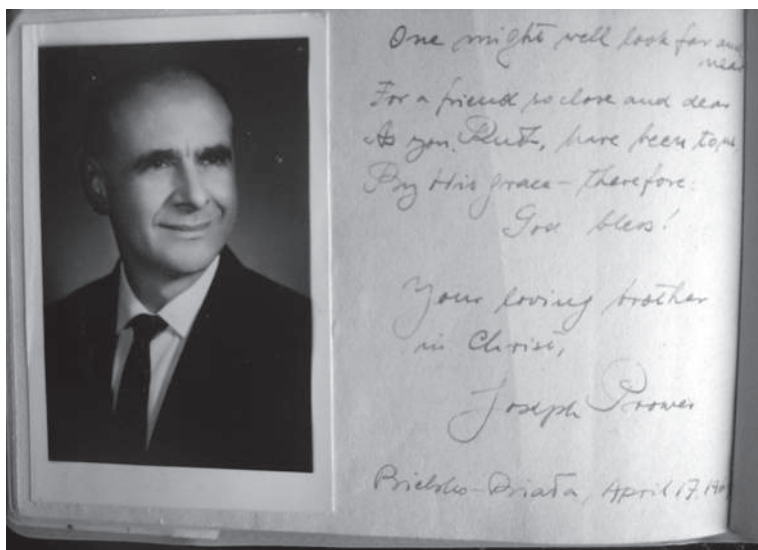 One might well look far and
near
For a friend so close and dear
As you, Ruth, have been to me
By His grace – therefore:
God bless!
Your loving brother
in Christ,
Joseph Prower
Bielsko-Biała, April 17,